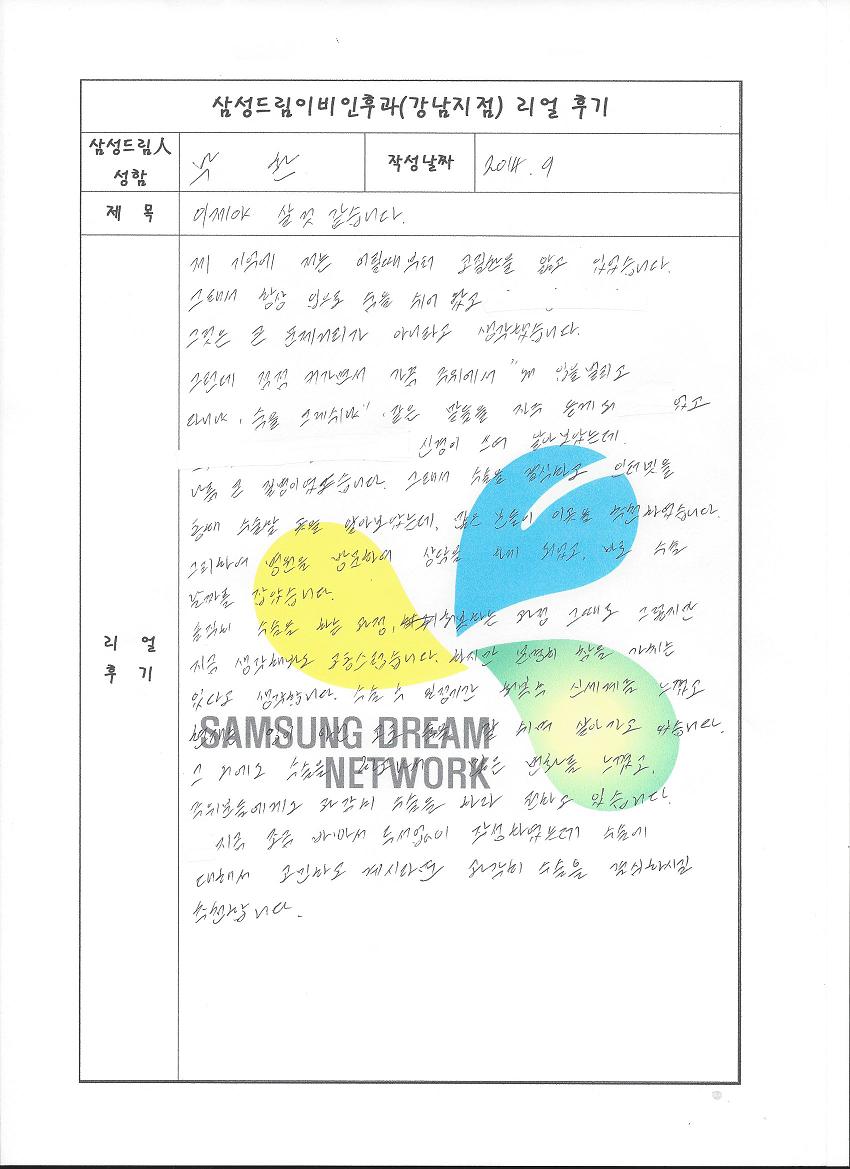 삼성드림이비인후과(강남지점) 리얼 후기
삼성드림人
성함
우 찬
작성날짜
2014. 9
제 목
이제야 살것 같습니다.
리 얼
후 기
제 기억에 저는 어릴때부터 코질환을 앓고 있었습니다.
그래서 항상 입으로 숨을 쉬어 왔고
그것은 큰 문제거리가 아니라고 생각했습니다.
그런데 점점 커가면서 가끔 주위에서 "왜 입을 벌리고
다니냐, 숨을 크게쉬냐" 같은 말들을 자주 듣게 되 었고
신경이 쓰여 알아보았는데.
나름 큰 질병이었습니다. 그래서 수술을 결심하고 인터넷을
통해 수술할 곳을 알아보았는데, 많은 분들이 이곳을 추천하였습니다.
그리하여 병원을 방문하여 상담을 하게 되었고, 바로 수술
날짜를 잡았습니다.
솔직히 수술을 하는 과정, 회복하는 과정 그때도 그렇지만
지금 생각해봐도 고통스럽습니다. 하지만 분명히 참을 가치는
있다고 생각합니다. 수술 후 일정기간 회복후 신세계를 느꼈고
현재는 입이 아닌 코로 숨을 잘 쉬며 살아가고 있습니다.
그 외에도 수술을 많은 변화를 느꼈고,
주위분들에게도 과감히 수술을 하라 권하고 있습니다.
지금 조금 바빠서 두서없이 작성하였는데 수술에
대해서 고민하고 계시다면 과감히 수술을 결심하시길
추천합니다.
SAMSUNG DREAM
NETWORK